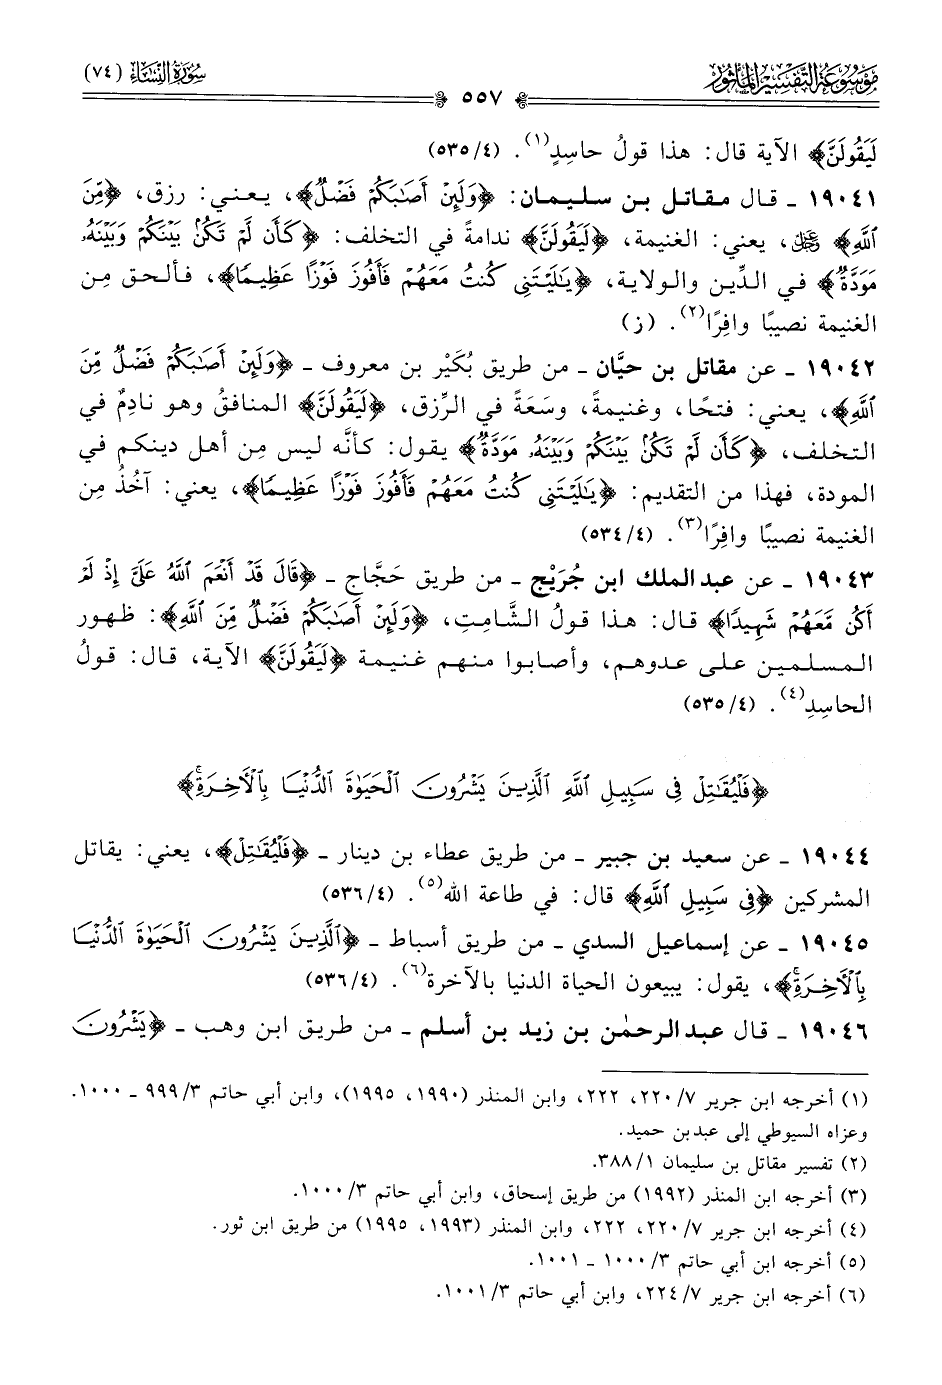 مَوْسُوعَة التَّفْسِيرِ المَأْثُور
٥٥٧
سُورَةُ النِّسَاءِ (٧٤)
لَيَقُولَنَّ﴾ الآية قال: هذا قولُ حاسِدٍ(١). (٤/ ٥٣٥)
١٩٠٤١ ـ قال مقاتل بن سليمان: ﴿وَلَئِنْ أَصَٰبَكُمْ فَضْلٌ﴾، يعني: رزق، ﴿مِّنَ
ٱللَّهِ﴾ ﷿، يعني: الغنيمة، ﴿لَيَقُولَنَّ﴾ ندامةً في التخلف: ﴿كَأَن لَّمْ تَكُنۢ بَيْنَكُمْ وَبَيْنَهُۥ
مَوَدَّةٌ﴾ في الدِّين والولاية، ﴿يَٰلَيْتَنِى كُنتُ مَعَهُمْ فَأَفُوزَ فَوْزًا عَظِيمًا﴾، فألحق مِن
الغنيمة نصيبًا وافِرًا(٢). (ز)
١٩٠٤٢ ـ عن مقاتل بن حيَّان ـ من طريق بُكَيْر بن معروف ـ ﴿وَلَئِنْ أَصَٰبَكُمْ فَضْلٌ مِّنَ
ٱللَّهِ﴾، يعني: فتحًا، وغنيمةً، وسَعَةً في الرِّزق، ﴿لَيَقُولَنَّ﴾ المنافقُ وهو نادِمٌ في
التخلف، ﴿كَأَن لَّمْ تَكُنۢ بَيْنَكُمْ وَبَيْنَهُۥ مَوَدَّةٌ﴾ يقول: كأنَّه ليس مِن أهل دينكم في
المودة، فهذا من التقديم: ﴿يَٰلَيْتَنِى كُنتُ مَعَهُمْ فَأَفُوزَ فَوْزًا عَظِيمًا﴾، يعني: آخُذُ مِن
الغنيمة نصيبًا وافِرًا(٣). (٤/ ٥٣٤)
١٩٠٤٣ ـ عن عبدالملك ابن جُرَيْج ـ من طريق حَجَّاج ـ ﴿قَالَ قَدْ أَنْعَمَ ٱللَّهُ عَلَىَّ إِذْ لَمْ
أَكُن مَّعَهُمْ شَهِيدًا﴾ قال: هذا قولُ الشَّامِتِ، ﴿وَلَئِنْ أَصَٰبَكُمْ فَضْلٌ مِّنَ ٱللَّهِ﴾: ظهور
المسلمين على عدوهم، وأصابوا منهم غنيمة ﴿لَيَقُولَنَّ﴾ الآية، قال: قولُ
الحاسِدِ(٤). (٤/ ٥٣٥)
﴿فَلْيُقَٰتِلْ فِى سَبِيلِ ٱللَّهِ ٱلَّذِينَ يَشْرُونَ ٱلْحَيَوٰةَ ٱلدُّنْيَا بِٱلْأَخِرَةِۚ﴾
١٩٠٤٤ ـ عن سعيد بن جبير ـ من طريق عطاء بن دينار ـ ﴿فَلْيُقَٰتِلْ﴾، يعني: يقاتل
المشركين ﴿فِى سَبِيلِ ٱللَّهِ﴾ قال: في طاعة الله(٥). (٤/ ٥٣٦)
١٩٠٤٥ ـ عن إسماعيل السدي ـ من طريق أسباط ـ ﴿ٱلَّذِينَ يَشْرُونَ ٱلْحَيَوٰةَ ٱلدُّنْيَا
بِٱلْأَخِرَةِۚ﴾، يقول: يبيعون الحياة الدنيا بالآخرة(٦). (٤/ ٥٣٦)
١٩٠٤٦ ـ قال عبدالرحمٰن بن زيد بن أسلم ـ من طريق ابن وهب ـ ﴿يَشْرُونَ
(١) أخرجه ابن جرير ٧/ ٢٢٠، ٢٢٢، وابن المنذر (١٩٩٠، ١٩٩٥)، وابن أبي حاتم ٣/ ٩٩٩ ـ ١٠٠٠.
وعزاه السيوطي إلى عبدبن حميد.
(٢) تفسير مقاتل بن سليمان ١/ ٣٨٨.
(٣) أخرجه ابن المنذر (١٩٩٢) من طريق إسحاق، وابن أبي حاتم ٣/ ١٠٠٠.
(٤) أخرجه ابن جرير ٧/ ٢٢٠، ٢٢٢، وابن المنذر (١٩٩٣، ١٩٩٥) من طريق ابن ثور.
(٥) أخرجه ابن أبي حاتم ٣/ ١٠٠٠ ـ ١٠٠١.
(٦) أخرجه ابن جرير ٧/ ٢٢٤، وابن أبي حاتم ٣/ ١٠٠١.